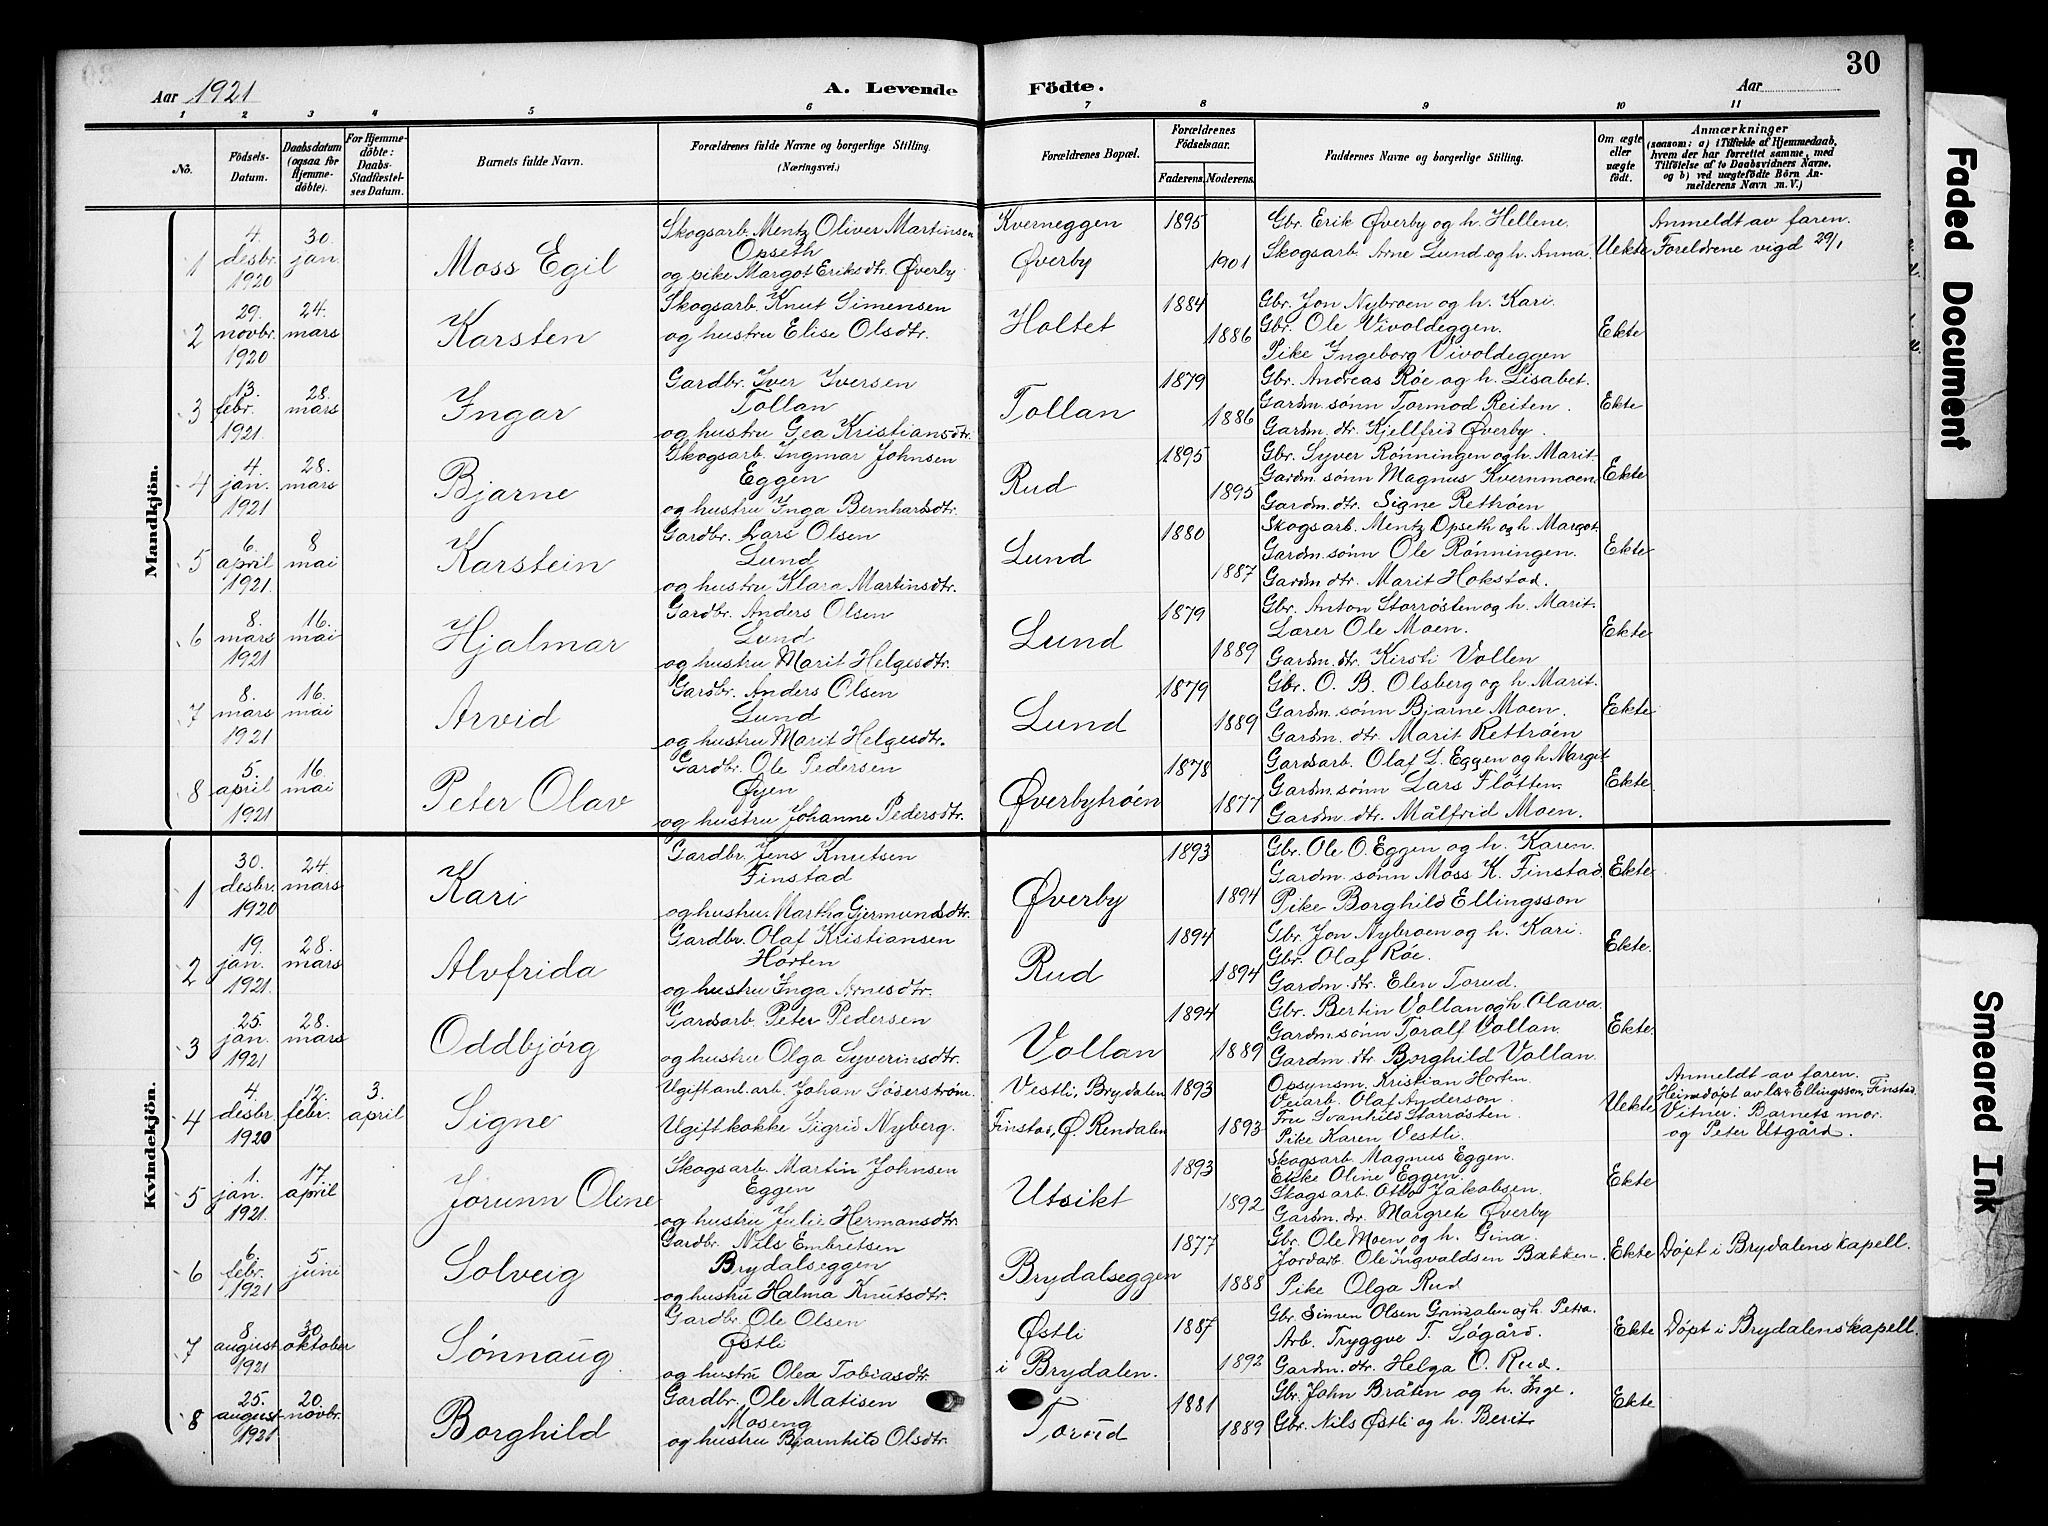 30
Aar 1921 A. Levende Födte. Aar
1 2 3 4 5 6 7 8 9 10 11
No. Födsels-Datum. Daabsdatum (ogsaa for Hjemme-döbte). For Hjemme-döbte: Daabs-Stadfæstel-ses Datum. Barnets fulde Navn. Forældrenes fulde Navne og borgerlige Stilling. (Næringsvei.) Forældrenes Bopæl. Forældrenes Födselsaar. Faderens. Moderens. Faddernes Navne og borgerlige Stilling. Om ægte eller uægte födt. Anmærkninger (saasom: a) i Tilfælde af Hjemmedaab, hvem der har forrettet samme, med Tilföielse af to Daabsvidners Navne, og b) ved uægtefödte Börn An-melderens Navn m. V.)
Mandkjön.
1 4. desbr. 1920 30. jan. Moss Egil Skogsarb. Mentz Oliver Martinsen Opseth og pike Margot Eriksdtr. Øverby Kverneggen Øverby 1895 1901 Gbr. Erik Øverby og h. Hellene. Skogsarb. Arne Lund og h. Anna. Uekte Anmeldt av faren. Foreldrene vigd 29/1
2 29. novbr. 1920 24. mars Karsten Skogsarb. Knut Simensen og hustru Elise Olsdtr. Holtet 1884 1886 Gbr. Jon Nybroen og h. Kari. Gbr. Ole Vivoldeggen. Pike Ingeborg Vivoldeggen Ekte
3 13. febr. 1921. 28. mars Ingar Gardbr. Iver Iversen Tollan og hustru Gea Kristiansdtr. Tollan 1879 1886 Gbr. Andreas Røe og h. Lisabet. Gardm. sønn Tormod Reiten. Gardm. dtr. Kjellfrid Øverby. Ekte
4 4. jan. 1921 28. mars Bjarne Skogsarb. Ingmar Johnsen Eggen og hustru Inga Bernhardsdtr. Rud 1895 1895 Gbr. Syver Rønningen og h. Marit. Gardm. sønn Magnus Kvernmoen. Gardm. dtr. Signe Rettrøen Ekte
5 6. april 1921. 8 mai Karstein Gardbr. Lars Olsen Lund og hustru Klara Martinsdtr. Lund 1880 1887 Skogsarb. Mentz Opseth og h. Margot. Gardm. sønn Ole Rønningen. Gardm. dtr. Marit Hokstad. Ekte
6 8. mars 1921 16. mai Hjalmar Gardbr. Anders Olsen Lund og hustru Marit Helgesdtr. Lund 1879 1889 Gbr. Anton Storrøsten og h. Marit. Lærer Ole Moen. Gardm. dtr. Kirsti Vollen Ekte
7 8. mars 1921 16. mai Arvid Gardbr. Anders Olsen Lund og hustru Marit Helgesdtr. Lund 1879 1889 Gbr. O. B. Olsberg og h. Marit. Gardm. sønn Bjarne Moen. Gardm. dtr. Marit Rettrøen Ekte
8 5. april 1921 16. mai Peter Olav Gardbr. Ole Pedersen Øyen og hustru Johanne Pedersdtr. Øverbytrøen 1878 1877 Gardsarb. Olaf L. Eggen og h Margit. Gardm. sønn Lars Fløtten. Gardm. dtr. Målfrid Moen. Ekte
Kvindekjön.
1 30. desbr. 1920 24. mars Kari Gardbr. Jens Knutsen Finstad og hustru. Martha Gjermundsdtr. Øverby 1893 1894 Gbr. Ole O. Eggen og h. Karen. Gardm. sønn Moss K. Finstad Pike Borghild Ellingsson Ekte
2 19. jan. 1921. 28. mars Alvfrida Gardbr. Olaf Kristiansen Horten og hustru Inga Arnesdtr. Rud 1894 1894 Gbr. Jon Nybroen og h. Kari. Gbr. Olaf Røe. Gardm. dtr. Elen Torud. Ekte.
3 25. jan. 1921 28. mars Oddbjørg Gardsarb. Peter Pedersen og hustru Olga Syverinsdtr. Vollan 1894 1889 Gbr. Bertin Vollan og h. Olava. Gardm. sønn Toralf Vollan. Gardm. dtr. Borghild Vollan. Ekte.
4 4. desbr. 1920 12. febr. 3. april Signe Ugift anl. arb. Johan Søderstrøm. Ugift kokke Sigrid Nyberg. Vestli, Brydalen Finstad, Ø. Rendalen 1893 1893 Opsynsm. Kristian Horten. Veiarb. Olaf Anderson. Fru Svanhild Storrøsten. Pike Karen Vestli. Uekte Anmeldt av faren. Heimedøpt av lær Ellingsson, Finstad. Vitner: Barnets mor. og Peter Utgård.
5 1. jan. 1921. 17. april Jorunn Oline Skogsarb. Martin Johnsen Eggen og hustru Julie Hermansdtr. Utsikt 1893 1892 Skogsarb. Magnus Eggen. Enke Oline Eggen. Skogsarb. Otto Jakobsen. Gardm. dtr. Margrete Øverby Ekte
6 6. febr. 1921 5 juni Solveig Gardbr. Nils Embretsen Brydalseggen og hustru Halma Knutsdtr. Brydalseggen 1877 1888 Gbr. Ole Moen og h. Gina. Jordarb. Ole Ingvaldsen Bakken. Pike Olga Rud Ekte Døpt i Brydalens kapell.
7 8 august 1921 30 oktober Sønnaug. Gardbr. Ole Olsen Østli og hustru Olea Tobiasdtr. Østli i Brydalen. 1887 1892 Gbr. Simen Olsen Grindalen og h. Petra. Arb. Tryggve T. Søgård. Gardm. dtr. Helga O. Rud. Ekte Døpt i Brydalens kapell.
8 25. august 1921 20. novbr. Borghild Gardbr. Ole Matisen Moseng og hustru Bjarnhild Olsdtr. Torud 1881 1889 Gbr. John Bråten og h. Inge. Gbr. Nils Østli og h. Berit Ekte
Faded Document
Smeared Ink